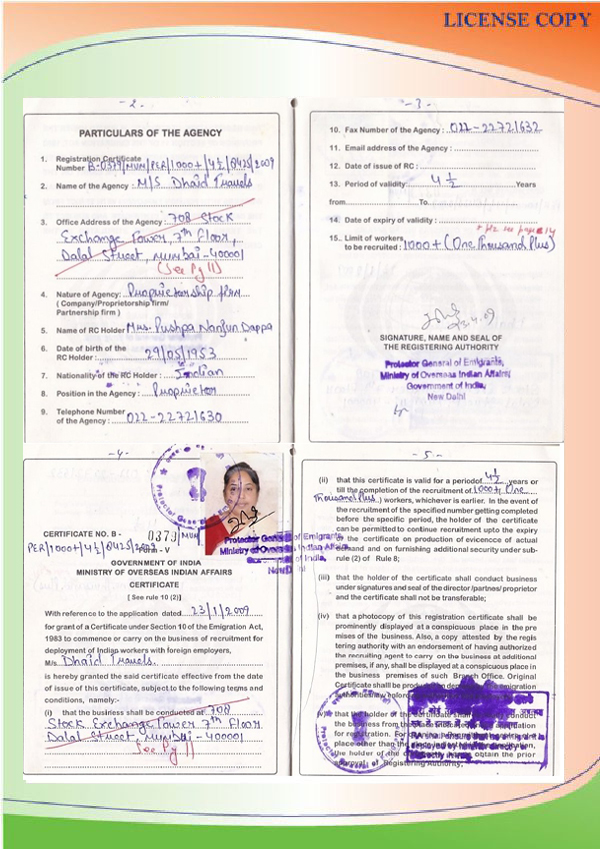 LICENSE COPY
- 2 -
PARTICULARS OF THE AGENCY
1. Registration Certificate
Number B-0379/MUM/PER/1000+/4½/8425/2009
2. Name of the Agency : M/S Dhaid Travels
3. Office Address of the Agency : 708 Stock
Exchange Tower, 7th Floor,
Dalal Street, Mumbai-400001
(See Pg 11)
4. Nature of Agency: Proprietorship firm
( Company/Proprietorship firm/
Partnership firm )
5. Name of RC Holder Mrs. Pushpa Nanjun Dappa
6. Date of birth of the
RC Holder : 29/05/1953
7. Nationality of the RC Holder : Indian
8. Position in the Agency : Proprietor
9. Telephone Number
of the Agency : 022-22721630
- 3 -
10. Fax Number of the Agency : 022-22721632
11. Email address of the Agency :
12. Date of issue of RC :
13. Period of validity 4½ Years
from To
14. Date of expiry of validity :
15. Limit of workers
to be recruited : 1000+ (One Thousand Plus)
23.4.09
SIGNATURE, NAME AND SEAL OF
THE REGISTERING AUTHORITY
Protector General of Emigrants,
Ministry of Overseas Indian Affairs,
Government of India,
New Delhi
- 4 -
CERTIFICATE NO. B - 0379/MUM/
PER/1000+/4½/8425/2009
Form - V
Protector General of Emigrants,
Ministry of Overseas Indian Affairs,
of India,
New Delhi
GOVERNMENT OF INDIA
MINISTRY OF OVERSEAS INDIAN AFFAIRS
CERTIFICATE
[ See rule 10 (2) ]
With reference to the application dated 23/1/2009
for grant of a Certificate under Section 10 of the Emigration Act,
1983 to commence or carry on the business of recruitment for
deployment of Indian workers with foreign employers,
M/s Dhaid Travels.
is hereby granted the said certificate effective from the date
of issue of this certificate, subject to the following terms and
conditions, namely:-
(i) that the business shall be conducted at 708
Stock Exchange Tower 7th Floor
Dalal Street Mumbai-400001
See Pg 11
- 5 -
(ii) that this certificate is valid for a period of 4½ years or
till the completion of the recruitment of 1000+ (One
Thousand Plus) workers, whichever is earlier. In the event of
the recruitment of the specified number getting completed
before the specific period, the holder of the certificate
can be permitted to continue recruitment upto the expiry
of the certificate on production of evicencce of actual
demand and on furnishing additional security under sub-
rule (2) of Rule 8;
(iii) that the holder of the certificate shall conduct business
under signatures and seal of the director/partner/proprietor
and the certificate shall not be transferable;
(iv) that a photocopy of this registration certificate shall be
prominently displayed at a conspicious place in the pre
mises of the business. Also, a copy attested by the regis
tering authority with an endorsement of having authorized
the recruiting agent to carry on the business at additional
premises, if any, shall be displayed at a conspicuous place in
the business premises of such Branch Office. Original
Certificate shall be
(v) that the holder of the certificate shall conduct
the business from the
for registration. For
place other than the
the holder of the obtain the prior
approval of Registering Authority.